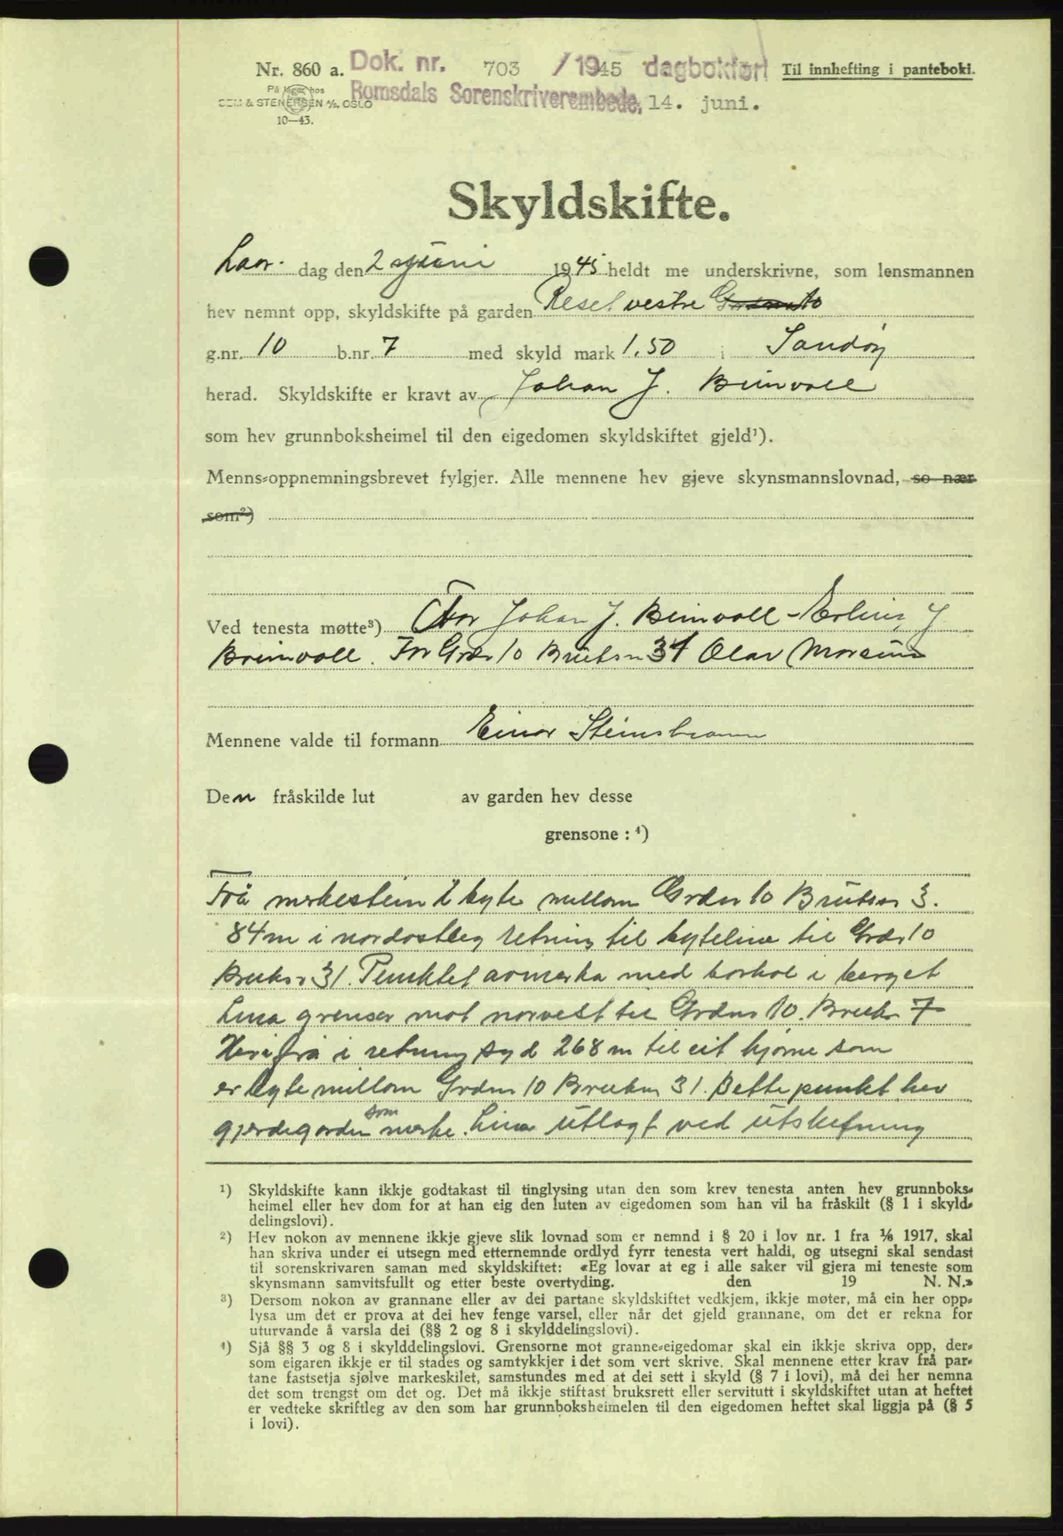 Nr. 860 a. Dok. nr. 703 /1945 dagbokført Til innhefting i panteboki.
På lager hos
SEM & STENERSEN A/S, OSLO
10—43.
Romsdals Sorenskriverembede, 14. juni.
Skyldskifte.
Laur. dag den 2 juni 1945 heldt me underskrivne, som lensmannen
hev nemnt opp, skyldskifte på garden Resel vestre
g.nr. 10 b.nr. 7 med skyld mark 1,50 i Sandøy
herad. Skyldskifte er kravt av Johan J. Brinvoll
som hev grunnboksheimel til den eigedomen skyldskiftet gjeld¹).
Menns-oppnemningsbrevet fylgjer. Alle mennene hev gjeve skynsmannslovnad, so nær
som²)
Ved tenesta møtte³) For Johan J. Brinvoll - Erlius J
Breinvoll. For Grdn 10 Bruksn 31 Olav
Mennene valde til formann Einar
Den fråskilde lut av garden hev desse
grensone : ⁴)
Frå merkestein i byte millom Grdnr 10 Bruksnr 3.
84 m i nordostleg retning til byteline til Grdnr 10
Bruksnr 31. Punktet avmerka med borhol i berget
Lina grenser mot norvest til Grdnr 10. Bruksn 7
Herifrå i retning syd 268 m til eit hjørne som
er byte millom Grdnr 10 Bruksn 31. Dette punkt hev
gjerdegarden som merke. Lina utlagt ved utskifning
¹) Skyldskifte kann ikkje godtakast til tinglysing utan den som krev tenesta anten hev grunnboks-
heimel eller hev dom for at han eig den luten av eigedomen som han vil ha fråskilt (§ 1 i skyld-
delingslovi).
²) Hev nokon av mennene ikkje gjeve slik lovnad som er nemnd i § 20 i lov nr. 1 fra ⅙ 1917, skal
han skriva under ei utsegn med etternemnde ordlyd fyrr tenesta vert haldi, og utsegni skal sendast
til sorenskrivaren saman med skyldskiftet: «Eg lovar at eg i alle saker vil gjera mi teneste som
skynsmann samvitsfullt og etter beste overtyding. den 19 N. N.»
³) Dersom nokon av grannane eller av dei partane skyldskiftet vedkjem, ikkje møter, må ein her opp-
lysa um det er prova at dei hev fenge varsel, eller når det gjeld grannane, om det er rekna for
uturvande å varsla dei (§§ 2 og 8 i skylddelingslovi).
⁴) Sjå §§ 3 og 8 i skylddelingslovi. Grensorne mot granne-eigedomar skal ein ikkje skriva opp, der-
som eigaren ikkje er til stades og samtykkjer i det som vert skrive. Skal mennene etter krav frå par-
tane fastsetja sjølve markeskilet, samstundes med at dei sett i skyld (§ 7 i lovi), må dei her nemna
det som trengst om det og. Det må ikkje stiftast bruksrett eller servitutt i skyldskiftet utan at heftet
er vedteke skriftleg av den som har grunnboksheimelen til den eigedomen heftet skal liggja på (§ 5
i lovi).